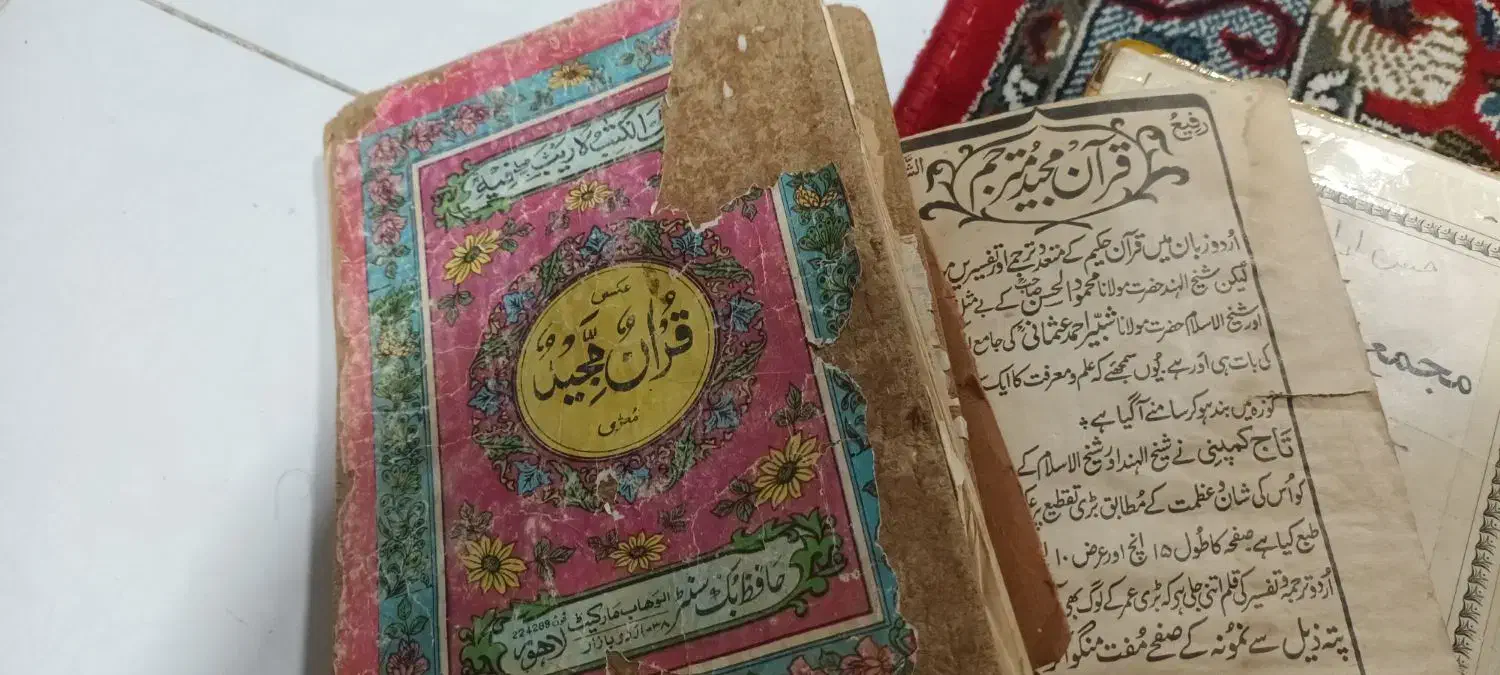 الکتٰب لا ریب فیه
عکسی
قُرآن مَّجِیْد
مُعرّٰی
حافظ بُک سنٹر الوهاب مارکیٹ فون 224289
۳۸۔اُردو بازار لاهور
رفیعُ
قرآن مجید مُترجم
اُردو زبان میں قرآن حکیم کے متعدد ترجمے اور تفسیریں
لیکن شیخ الہند حضرت مولانا محمود الحسن صاحبؒ کے بے مثل
اور شیخ الاسلام حضرت مولانا شبیر احمد عثمانیؒ کی جامع
کی بات ہی اور ہے۔ یُوں سمجھئے کہ علم و معرفت کا ایک
کُوزہ میں بند ہو کر سامنے آ گیا ہے ۔
تاج کمپنی نے شیخ الہند اور شیخ الاسلام کے
کو اُس کی شان و عظمت کے مُطابق بڑی تقطیع پر
طبع کیا ہے۔ صفحہ کا طُول ۱۵ انچ اور عرض ۱۰
اُردو ترجمہ و تفسیر کی قلم اتنی جلی ہے کہ بڑی عمر کے لوگ بھی
پتہ ذیل سے نمونہ کے صفحے مُفت منگوا